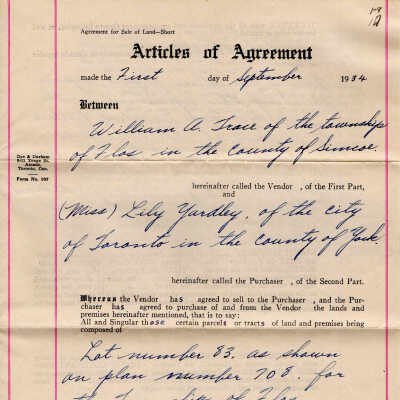 19
12
Agreement for Sale of Land—Short
Articles of Agreement
made the First day of September 1934
Between
William A. Trace of the township
of Flos in the County of Simcoe
hereinafter called the Vendor , of the First Part,
and
(Miss) Lily Yardley, of the city
of Toronto in the county of York
hereinafter called the Purchaser , of the Second Part.
Whereas the Vendor has agreed to sell to the Purchaser , and the Pur-
chaser has agreed to purchase of and from the Vendor the lands and
premises hereinafter mentioned, that is to say:
All and Singular those certain parcels or tracts of land and premises being
composed of
Lot number 83. as shown
on plan number 708. for
the Township of Flos
Dye & Durham
Toronto, Can.
Form No. 107